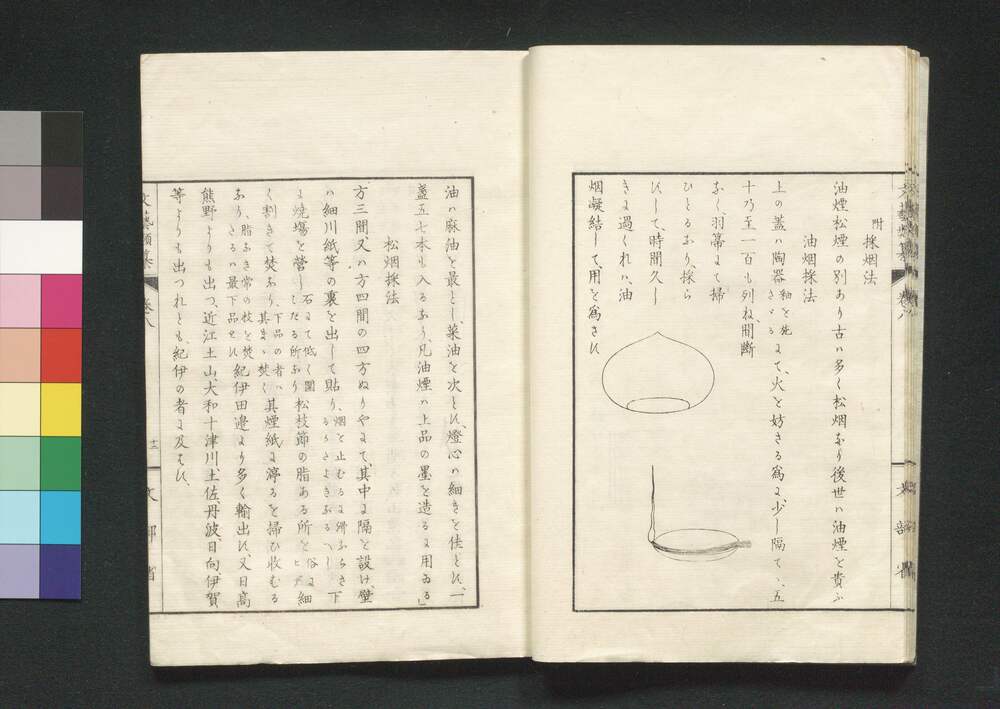 附
採烟法
油煙松煙の別あり古ハ多く松烟なり後世ハ油煙を貴ふ
油烟採法
上の蓋ハ陶器
釉を施
さゞる
にて、火を妨さる為に、少し隔てゝ、五
十乃至一百も列ね、間断
なく、羽箒にて掃
ひとるなり、採ら
ずして、時間久し
きに過くれハ、油
烟凝結して、用を為さす
文部省
油ハ麻油を最とし、菜油を次とす、燈心ハ細きを佳とす、一
盞五七本も入るなり、凡油煙ハ上品の墨を造るに用ゐる
松烟採法
方三間、又ハ方四間の四方ぬりやにて、其中に隔を設け、壁
ハ細川紙等の裏を出して貼り、
烟を止むるに滑ならさ
るうさよきなるへし
下
に焼場を営し
石にて低く圍
したる所なり
松枝節の脂ある所を
俗に
ヒデ
細
く割きて焚なり、
下品の者ハ
其まゝ焚く
其煙紙に滞るを掃ひ收むる
なり、
脂なき常の枝を焚
さるハ最下品也
紀伊田邊より多く輸出す、又日高
熊野よりも出つ、近江土山、大和十津川土佐、丹波日向伊賀
等よりも出つれとも、紀伊の者に及はす、
文藝類纂
巻八
十二
文部省